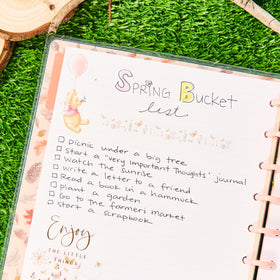 Spring Bucket
list
Picnic under a big tree
Start a "very important Thoughts" journal
Watch the sunrise
Write a letter to a friend
Read a book in a hammock
Plant a garden
Go to the farmers market
Start a scrapbook
Enjoy
THE LITTLE
THINGS